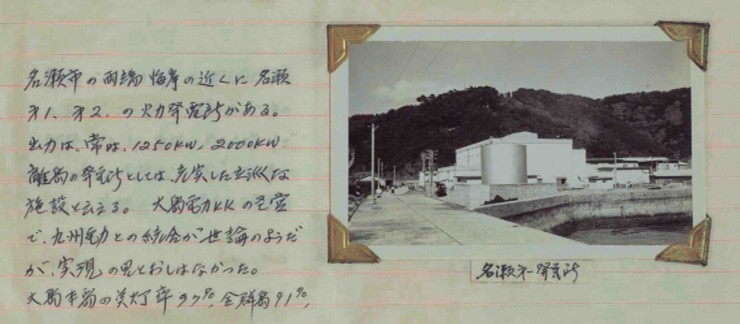 名瀬市の両端海岸の近くに名瀬
才1、才2、の火力発電所がある。
出力は、常時、1250KW, 2000KW
離島の発電所としては、充実した立派な
施設と云える。大島電力KKの経営
で、九州電力との統合が世論のようだ
が、実現の見とおしはなかった。
大島本島の点灯率97%、全群島91%、
名瀬才一発電所